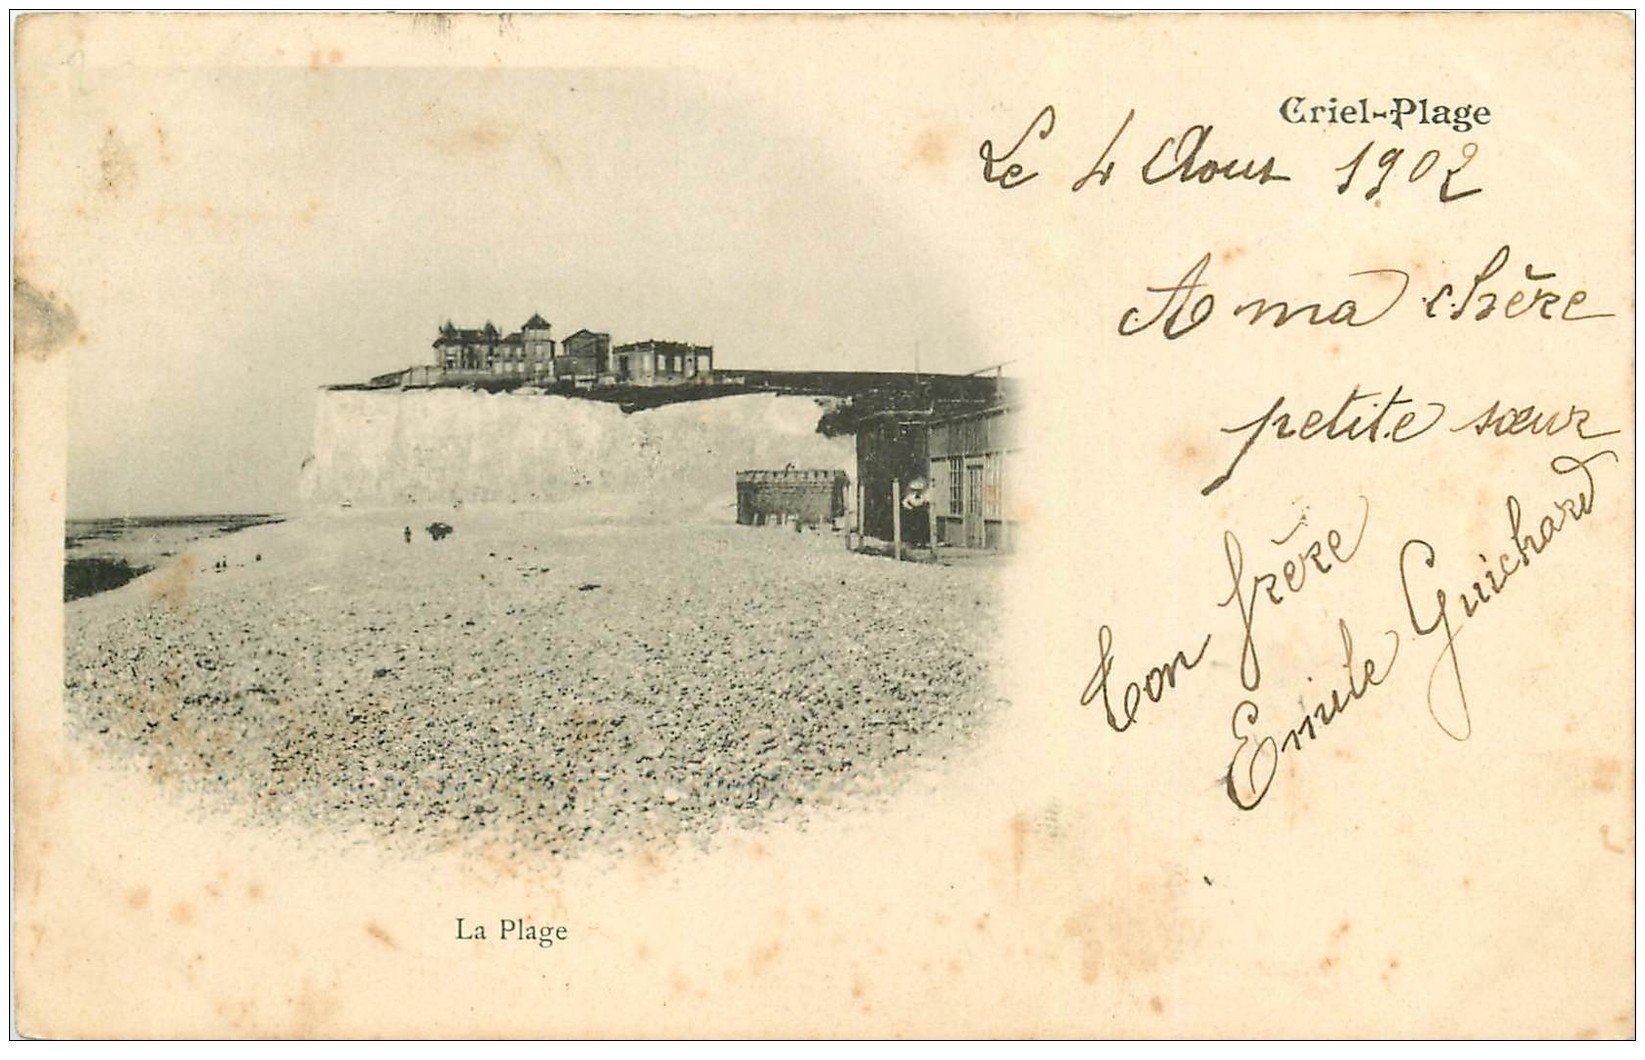 Criel-Plage
Le 4 Aout 1902
A ma chère
petite sœur
Ton frère
Emile Guichard
La Plage